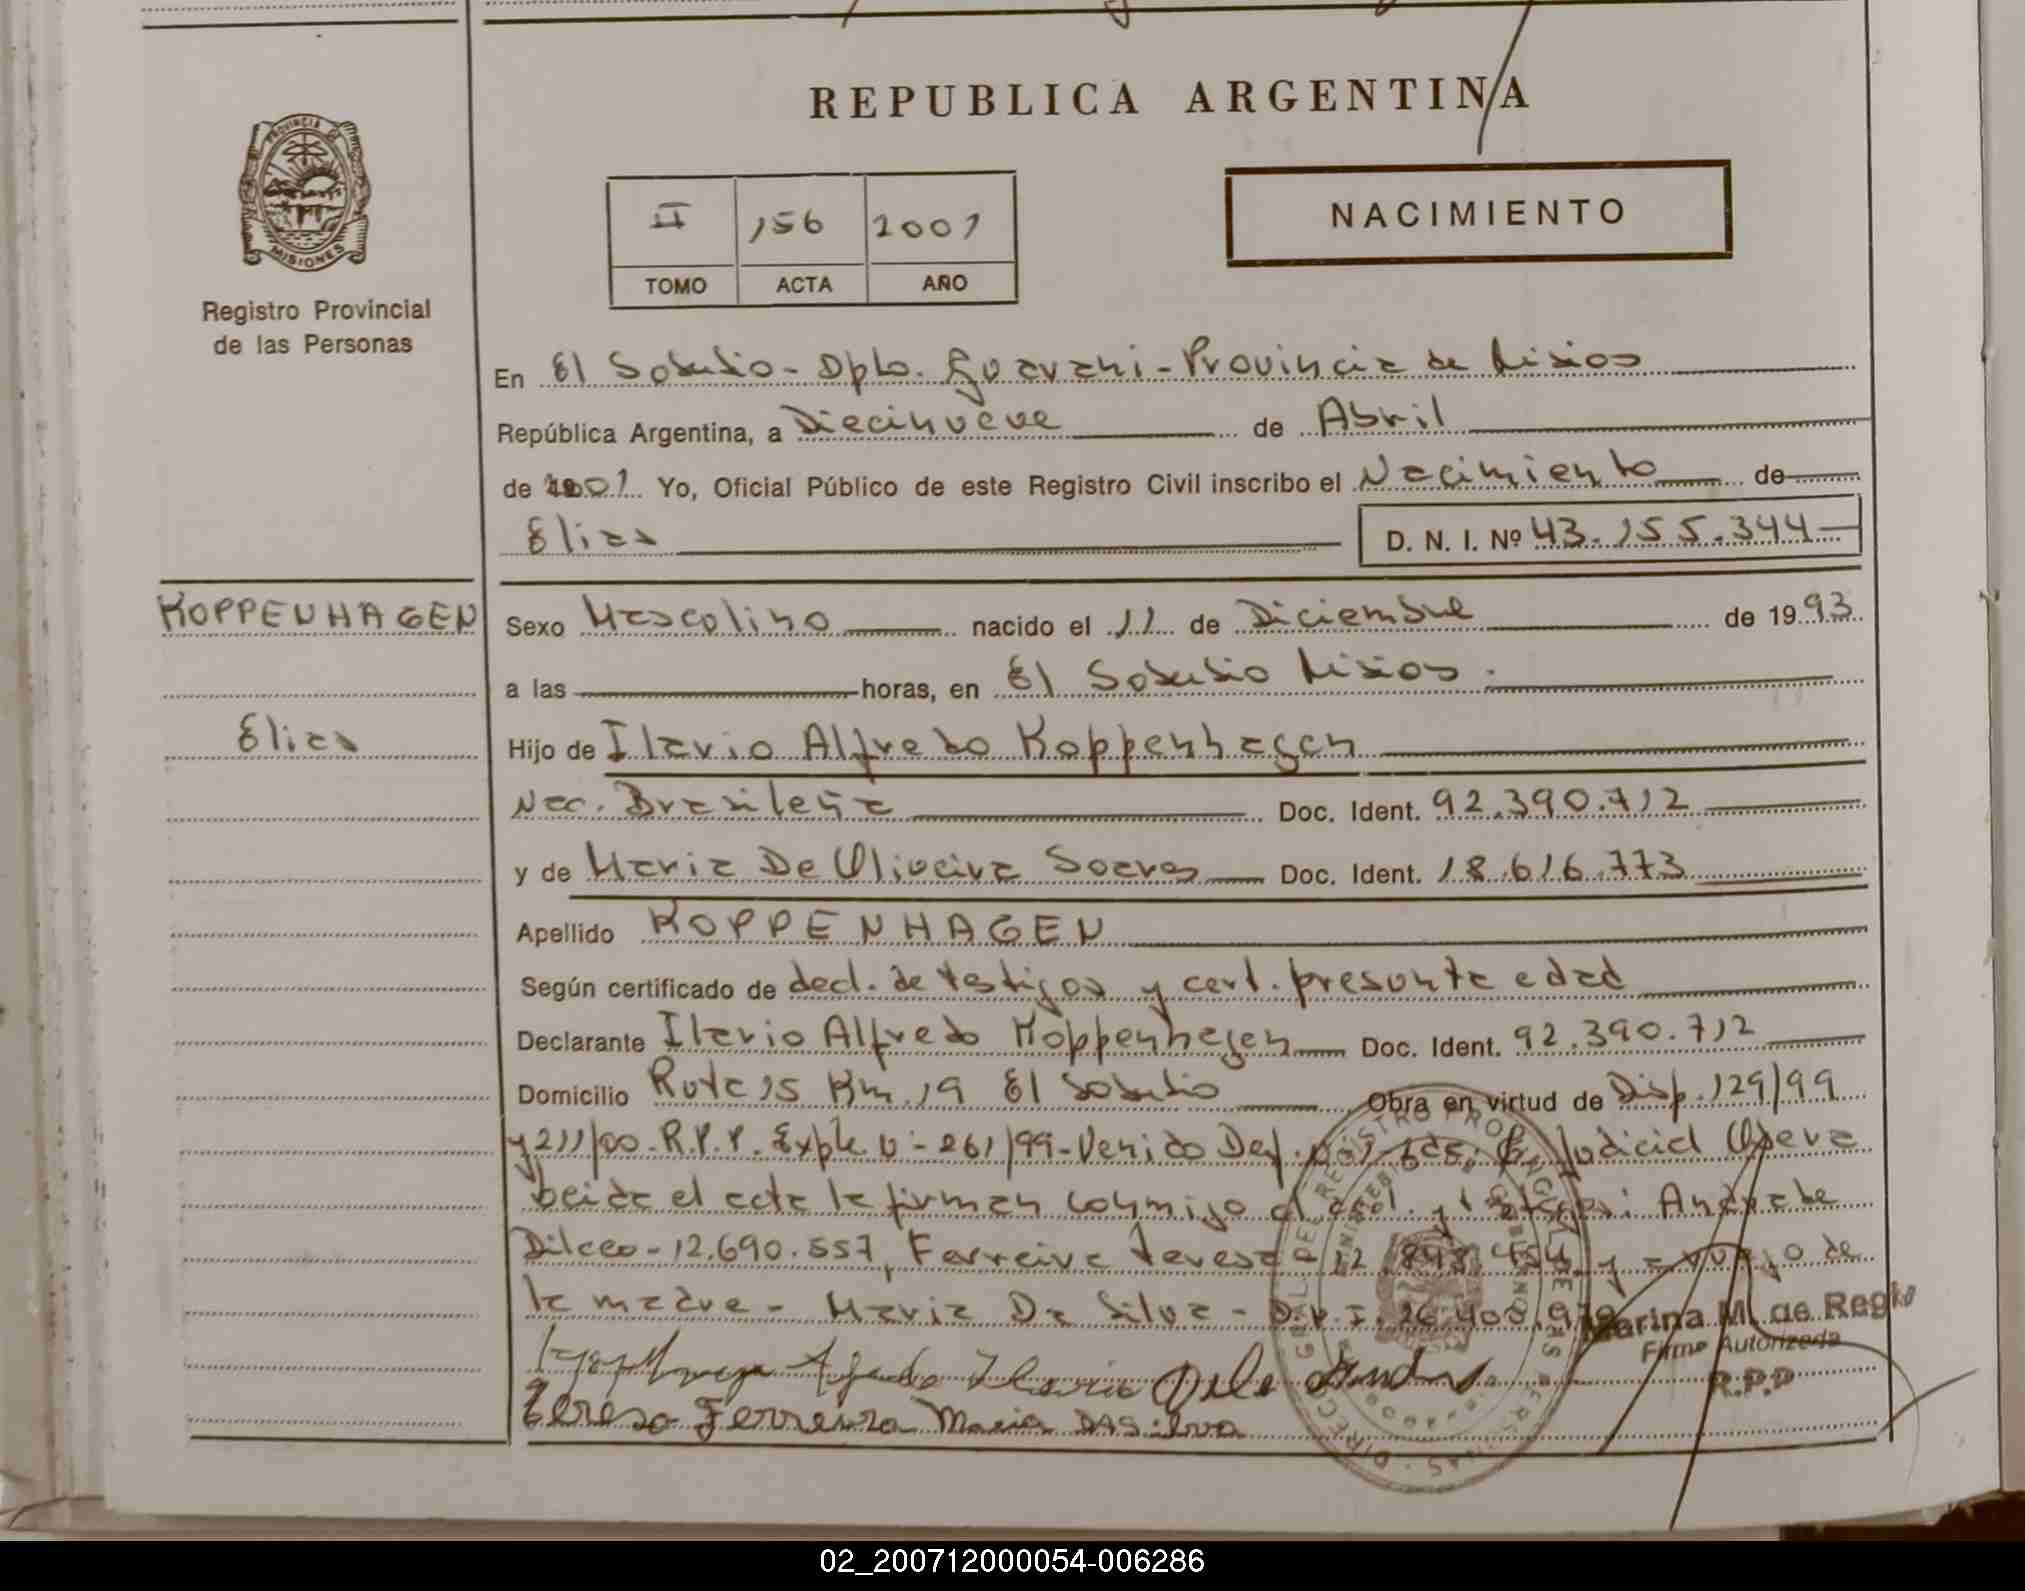 REPUBLICA ARGENTINA
PROVINCIA DE
MISIONES
Registro Provincial
de las Personas
II 156 2001
TOMO ACTA AÑO
NACIMIENTO
En El Soberbio - Dpto. Guarani - Provincia de Misios
República Argentina, a Diecinueve de Abril
de 2001 Yo, Oficial Público de este Registro Civil inscribo el Nacimiento de
Elias D. N. I. Nº 43.155.344
KOPPENHAGEN
Elias
Sexo Masculino nacido el 11 de Diciembre de 1993
a las horas, en El Soberbio Misios.
Hijo de Ilario Alfredo Koppenhagen
Nac. Brasileña Doc. Ident. 92.390.712
y de Maria De Oliveira Soares Doc. Ident. 18.616.773
Apellido KOPPENHAGEN
Según certificado de decl. de testigos y cert. presunta edad
Declarante Ilario Alfredo Koppenhagen Doc. Ident. 92.390.712
Domicilio Ruta 15 Km 19 El Soberbio Obra en virtud de Disp. 129/99
y 211/00 - R.P.P. Expte N: - 261/99 - Venido Def. Judicial Obera
Leida el acta la firman conmigo el decl. y testigos: Andrade
Dilceo - 12.690.557, Ferreira Teresa - 12.843.454 y a ruego de
la madre - Maria Da Silva - D.N.I. 26.400.979
Marina M. de Regio
Firma Autorizada
R.P.P
Alfredo Ilario
Teresa Ferreira Maria DASilva
02_200712000054-006286